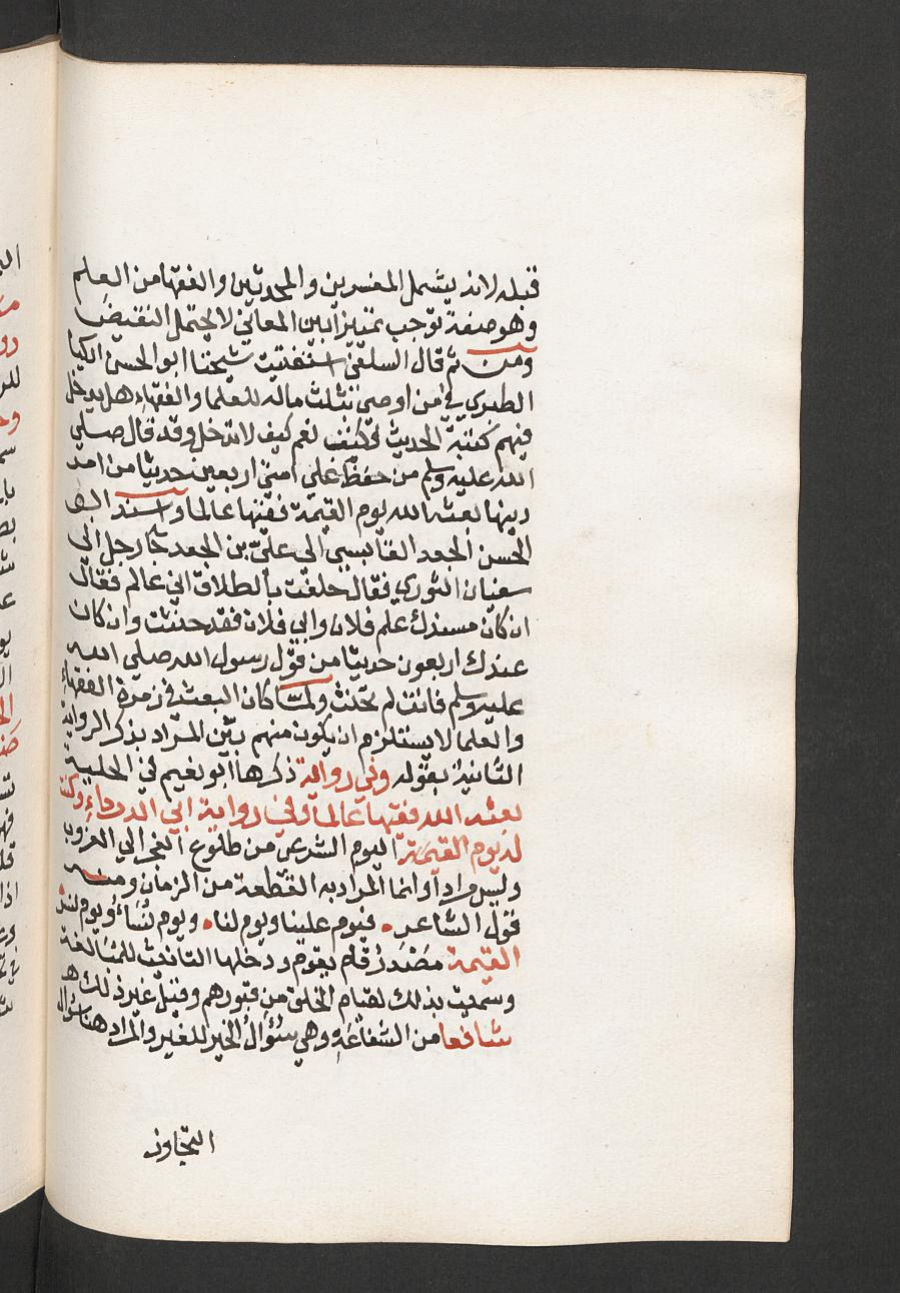 قبله لانه يشمل المفسرين والمحدثين والفقها من العلم
وهو صفة توجب تمييزا بين المعاني لا يحتمل النقيض
ومن ثم قال السلفي استفتيت شيخنا ابو الحسن الكيا
الطبري في من اوصي بثلث ماله للعلما والفقهاء هل يدخل
فيهم كتبة الحديث فكتب نعم كيف لا تدخل وقد قال صلي
الله عليه وسلم من حفظ علي امتي اربعين حديثا من امر
دينها بعثه الله يوم القيمة فقيها عالما واسند
الحسن الجعد القابسي الي علي بن الجعد جا رجل الي
سفيان الثوري فقال حلفت بالطلاق اني عالم فقال
ان كان مسندك علم فلان وابي فلان فقد حنثت وان كان
عندك اربعون حديثا من قول رسول الله صلي الله
عليه وسلم فانت لم تحنث ولما كان البعث في زمرة الفقهاء
والعلما لا يستلزم ان يكون منهم بين المراد بذكر الرواية
الثانية بقوله وفي رواية ذكرها ابو نعيم في الحلية
بعثه الله فقيها عالما وفي رواية ابي الدرداء وكنت
له يوم القيمة اليوم الشرعي من طلوع الفجر الي الغروب
وليس مرادا وانما المراد به القطعة من الزمان ومنه
قول الشاعر فيوم علينا ويوم لنا ويوم نساء ويوم نسر
القيمة مصدر قام يقوم ودخلها التانيث للمبالغة
وسميت بذلك لقيام الخلق من قبورهم وقيل غير ذلك
شافعا من الشفاعة وهي سؤال الخير للغير والمراد هنا سؤال
التجاوز